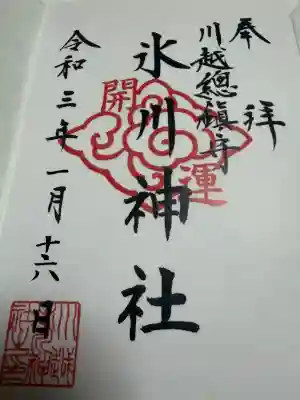 奉拝
川越總鎮守
氷川神社
開運
令和三年一月十六日